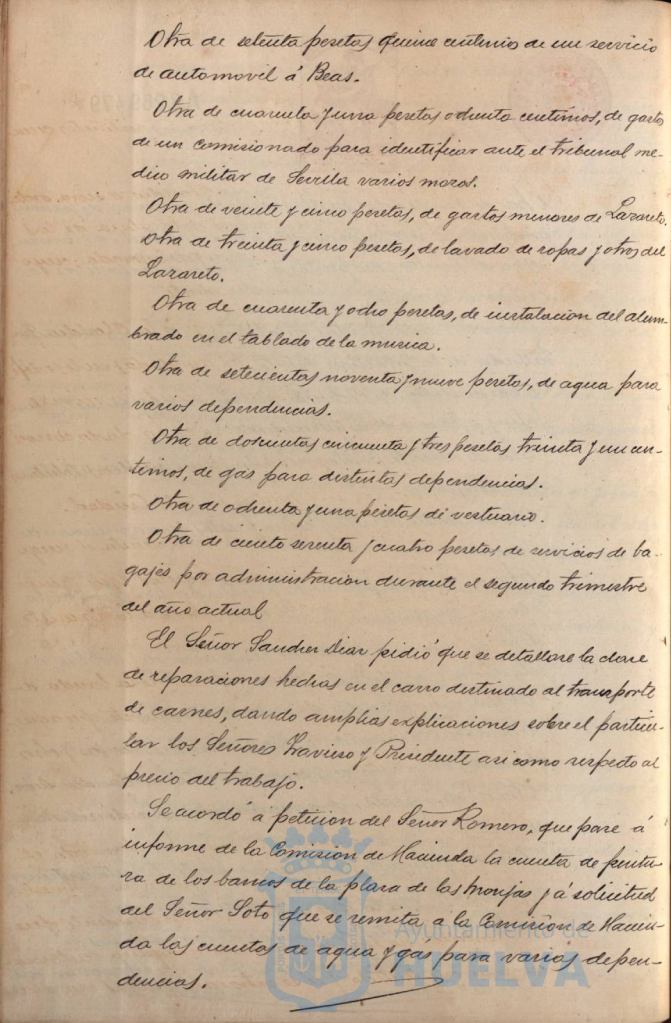 Otra de setenta pesetas quince centimos de un servicio
de automovil á Beas.
Otra de cuarenta y una pesetas ochenta centimos, de gastos
de un comisionado para identificar ante el tribunal me-
dico militar de Sevilla varios mozos.
Otra de veinte y cinco pesetas, de gastos menores de Lazareto.
Otra de treinta y cinco pesetas, de lavado de ropas y otros del
Lazareto.
Otra de cuarenta y ocho pesetas, de instalacion del alum-
brado en el tablado de la musica.
Otra de setecientas noventa y nueve pesetas, de agua para
varias dependencias.
Otra de doscientas cincuenta y tres pesetas treinta y un cen-
timos, de gas para distintas dependencias.
Otra de ochenta y una pesetas de vestuario.
Otra de ciento y cuatro pesetas de servicios de ba-
gajes por administracion durante el segundo trimestre
del año actual
El Señor Sanchez Diaz pidió que se detallase la clase
de reparaciones hechas en el carro destinado al transporte
de carnes, dando amplias explicaciones sobre el particu-
lar los Señores Travieso y Presidente asi como respecto al
precio del trabajo.
Se acordó á peticion del Señor Romero, que pase á
informe de la Comision de Hacienda la cuenta de pintu-
ra de los bancos de la plaza de las Monjas y á solicitud
del Señor Soto que se remita a la Comision de Hacien-
da las cuentas de agua y gas para varias depen-
dencias.
Ayuntamiento de
HUELVA